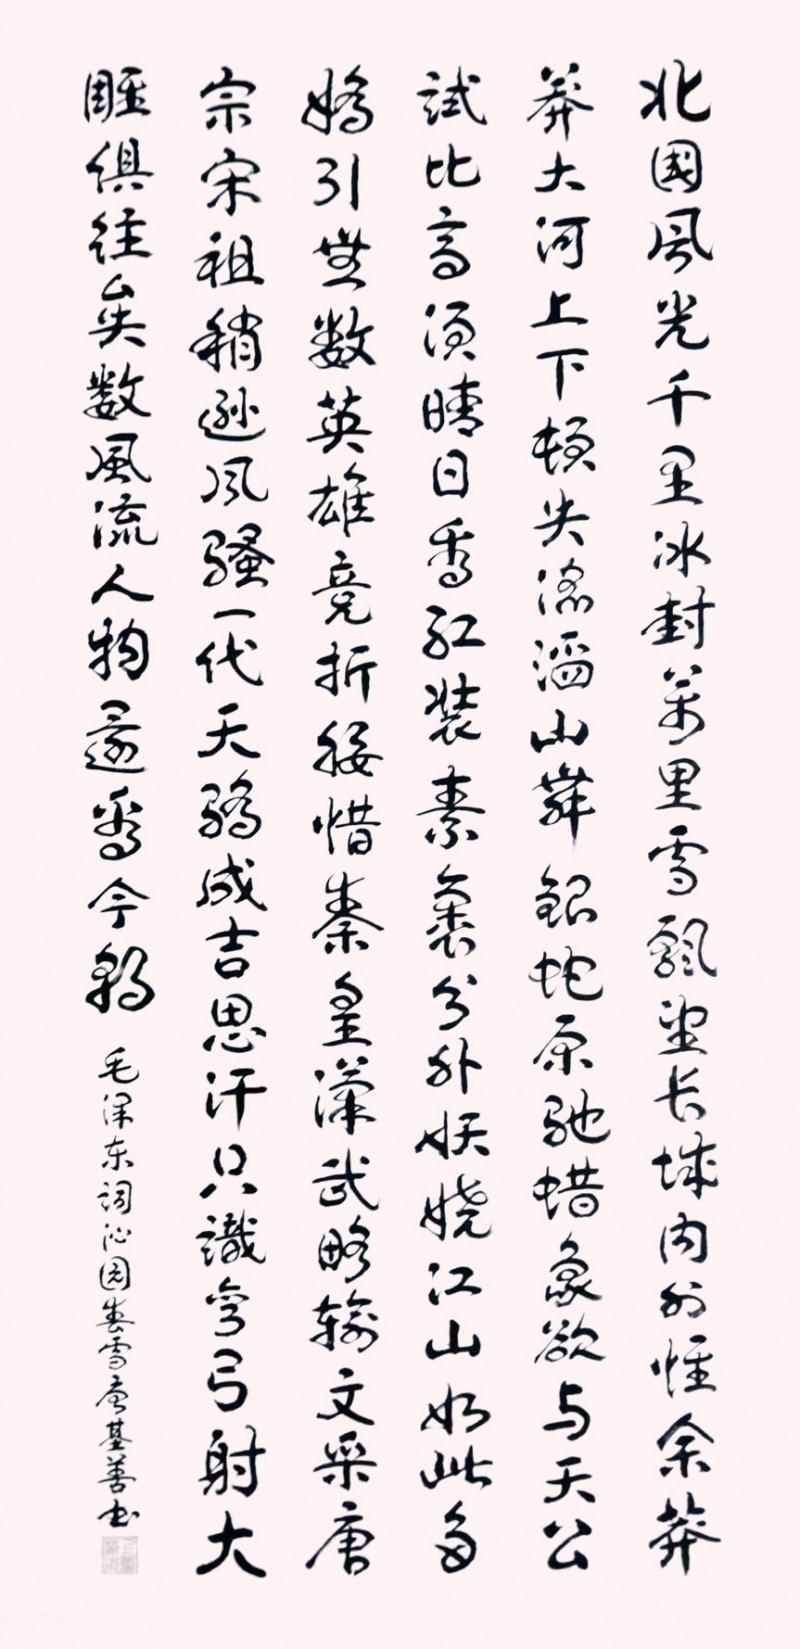 北國风光千里冰封萬里雪飄望长城内外惟余莽
莽大河上下顿失滔滔山舞銀蛇原驰蜡象欲与天公
試比高须晴日看红装素裹分外妖娆江山如此多
嬌引無数英雄竞折腰惜秦皇漢武略输文采唐
宗宋祖稍逊风骚一代天骄成吉思汗只識弯弓射大
雕俱往矣数風流人物還看今朝
毛泽东词沁园春雪唐基善书